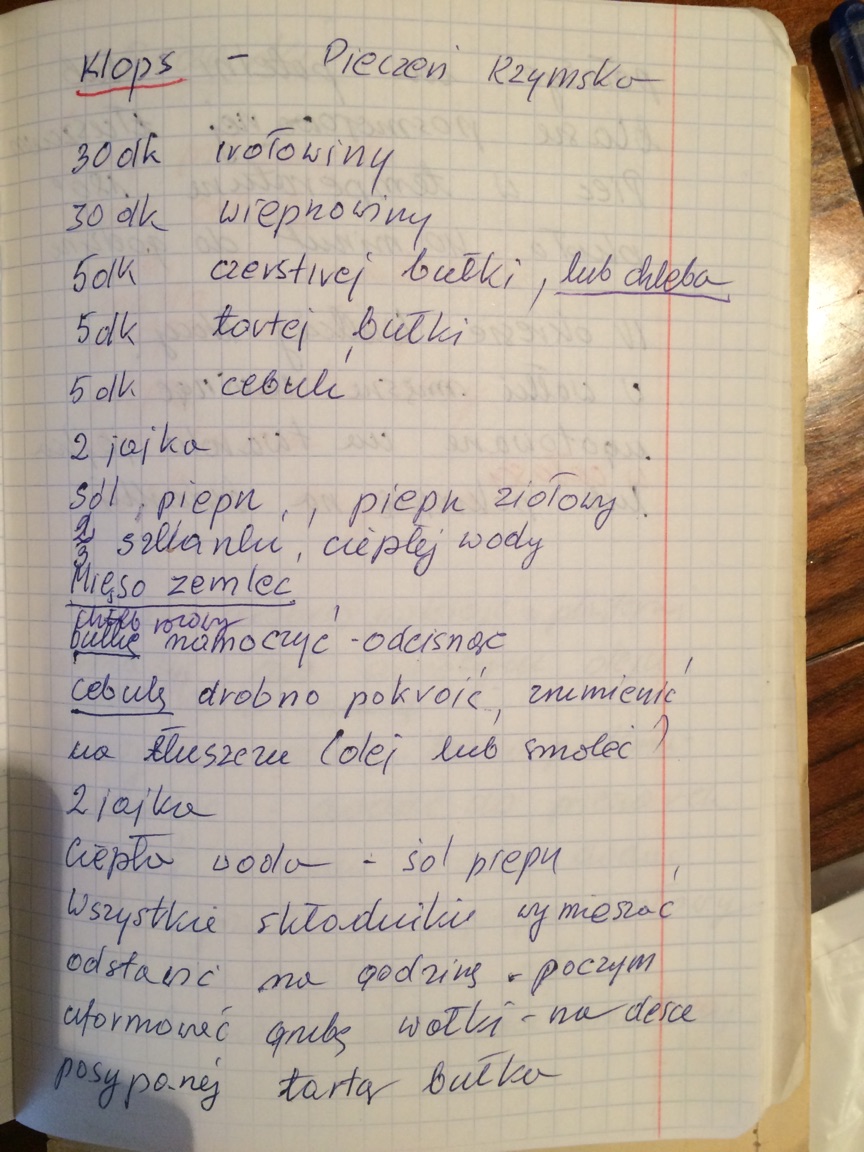 Klops - Pieczeń Rzymska
30 dk wołowiny
30 dk wieprzowiny
5 dk czerstwej bułki, lub chleba
5 dk tartej bułki
5 dk cebuli
2 jajka
sól, pieprz, , pieprz ziołowy
2/3 szklanki, ciepłej wody
Mięso zemleć
chleb razowy
bułkę namoczyć - odcisnąć
cebulę drobno pokroić, zrumienić
na tłuszczu (olej lub smalec)
2 jajka
Ciepła woda - sól pieprz
Wszystkie składniki wymieszać
odstawić na godzinę - poczym
uformować grubę wałki - na desce
posypanej tartą bułka